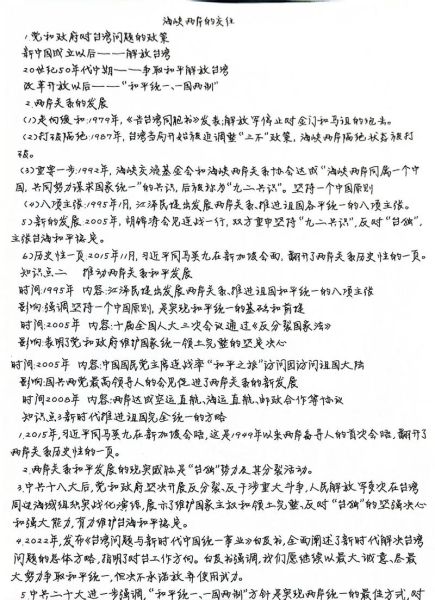 海峡两岸的交往
1.党和政府对台湾问题的政策
新中国成立以后——解放台湾
20世纪50年代中期——争取和平解放台湾
改革开放以后——“和平统一、一国两制”
2.两岸关系的发展
(1)走向缓和:1979年,《告台湾同胞书》发表;解放军停止对金门和马祖的炮击。
(2)打破隔绝:1987年,台湾当局开始被迫调整“三不”政策,海峡两岸隔绝状态被打
破。
(3)重要一步:1992年,海峡交流基金会和海峡两岸关系协会达成“海峡两岸同属一个中
国,共同努力谋求国家统一”的共识,后被称为“九二共识”。坚持一个中国原则
(4)八项主张:1995年1月,江泽民提出发展两岸关系、推进祖国和平统一的八项主张。
5)新的发展:2005年,胡锦涛会见连战一行,双方重申坚持“九二共识”,反对“台独”,
主张台海和平稳定。
6)历史性一页:2015年11月,习近平同马英九在新加坡会面,翻开了两岸关系历史性的一页。
知识点二 推动两岸关系和平发展
时间:1995年 内容:江泽民提出发展两岸关系、推进祖国和平统一的八项主张
影响:强调坚持一个中国原则,是实现和平统一的基础和前提
时间:2005年 内容:十届全国人大三次会议通过《反分裂国家法》
影响:表明了党和政府维护国家统一领土完整的坚定决心
时间:2005年 内容:中国国民党主席连战率“和平之旅”访问团访问祖国大陆
影响:国共两党最高领导人的会见促进了两岸关系的新发展
时间:2008年 内容:两岸达成空运直航、海运直航、邮政合作等协议
知识点3:新时代推进祖国完全统一的方略
1.2015年,习近平同马英九在新加坡会晤,这是1949年以来两岸领导人的首次会晤,翻开了
两岸关系历史性的一页。
2.两岸关系和平发展的现实威胁是“台独”势力及其分裂活动。
3.中共十八大后,党和政府坚决开展反分裂、反干涉重大斗争,人民解放军多次在台湾
周边海域组织实战化演练,展示了维护国家主权和领土完整、反对“台独”的坚强决心
和强大能力,有力维护台海和平稳定。
4.2022年,发布《台湾问题与新时代中国统一事业》白皮书,全面阐述了新时代解决台湾
问题的总体方略,指明了对台工作方向。白皮书强调,我们愿继续以最大诚意、尽最
大努力争取和平统一,但决不承诺放弃使用武力。
5.中共二十大进一步强调,“和平统一、一国两制”方针是实现两岸统一的最佳方式,对